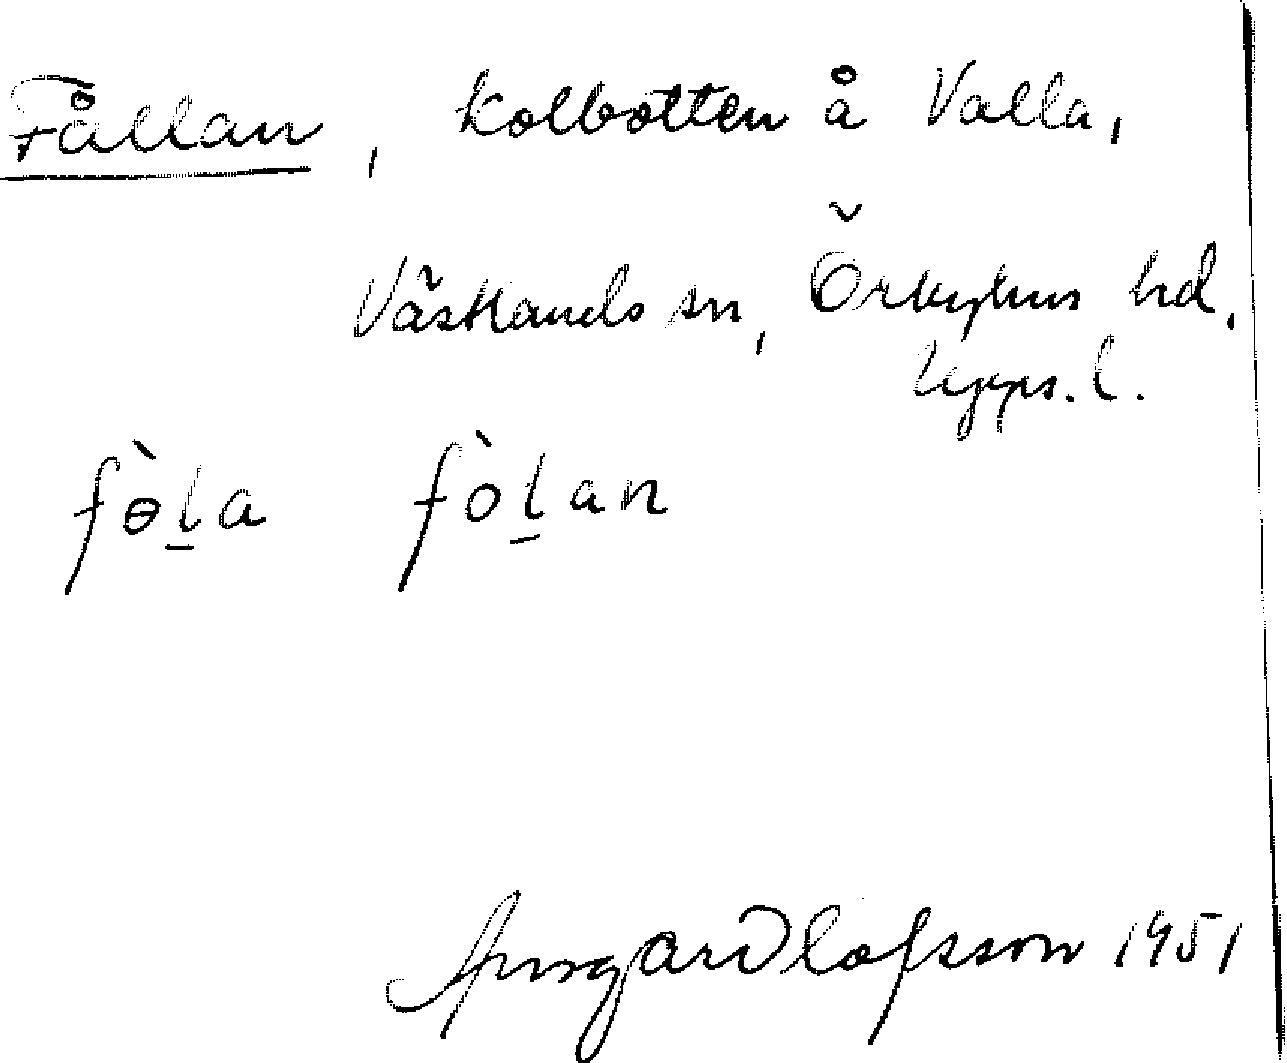 Fållan, Kolbotten å Valla,
Västlands sn, Örbyhus hd,
Upps. l.
fòla fòlan
Olofsson 1951